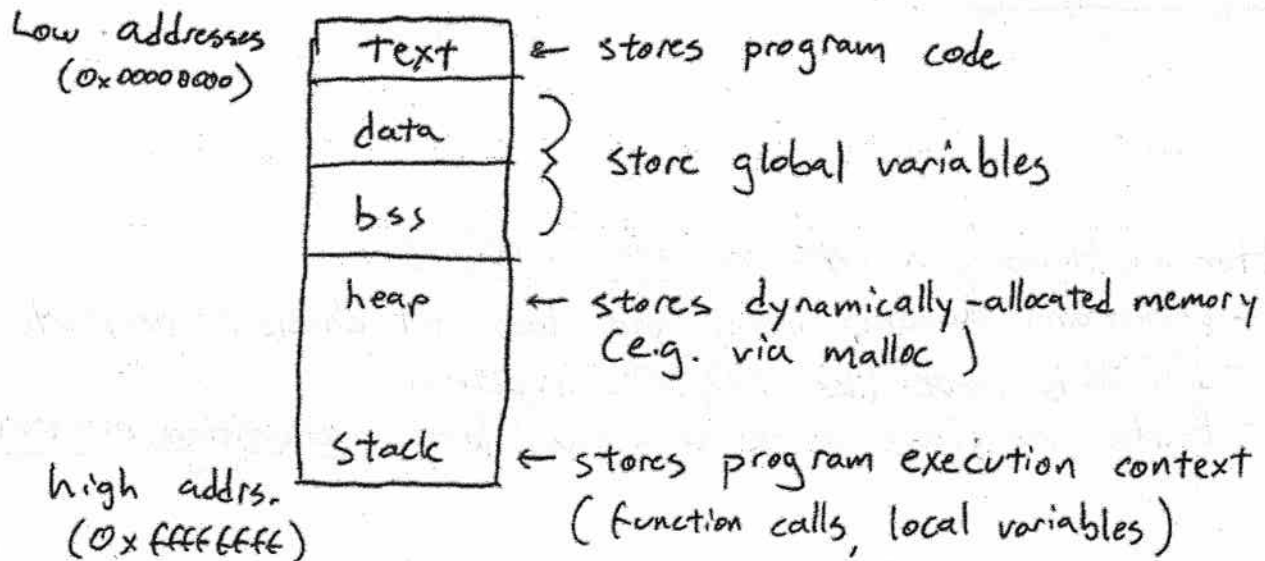 Low addresses
(0x00008000)
text ← stores program code
data
store global variables
bss
heap ← stores dynamically-allocated memory
(e.g. via malloc)
stack ← stores program execution context
(function calls, local variables)
high addrs.
(0xffffffff)